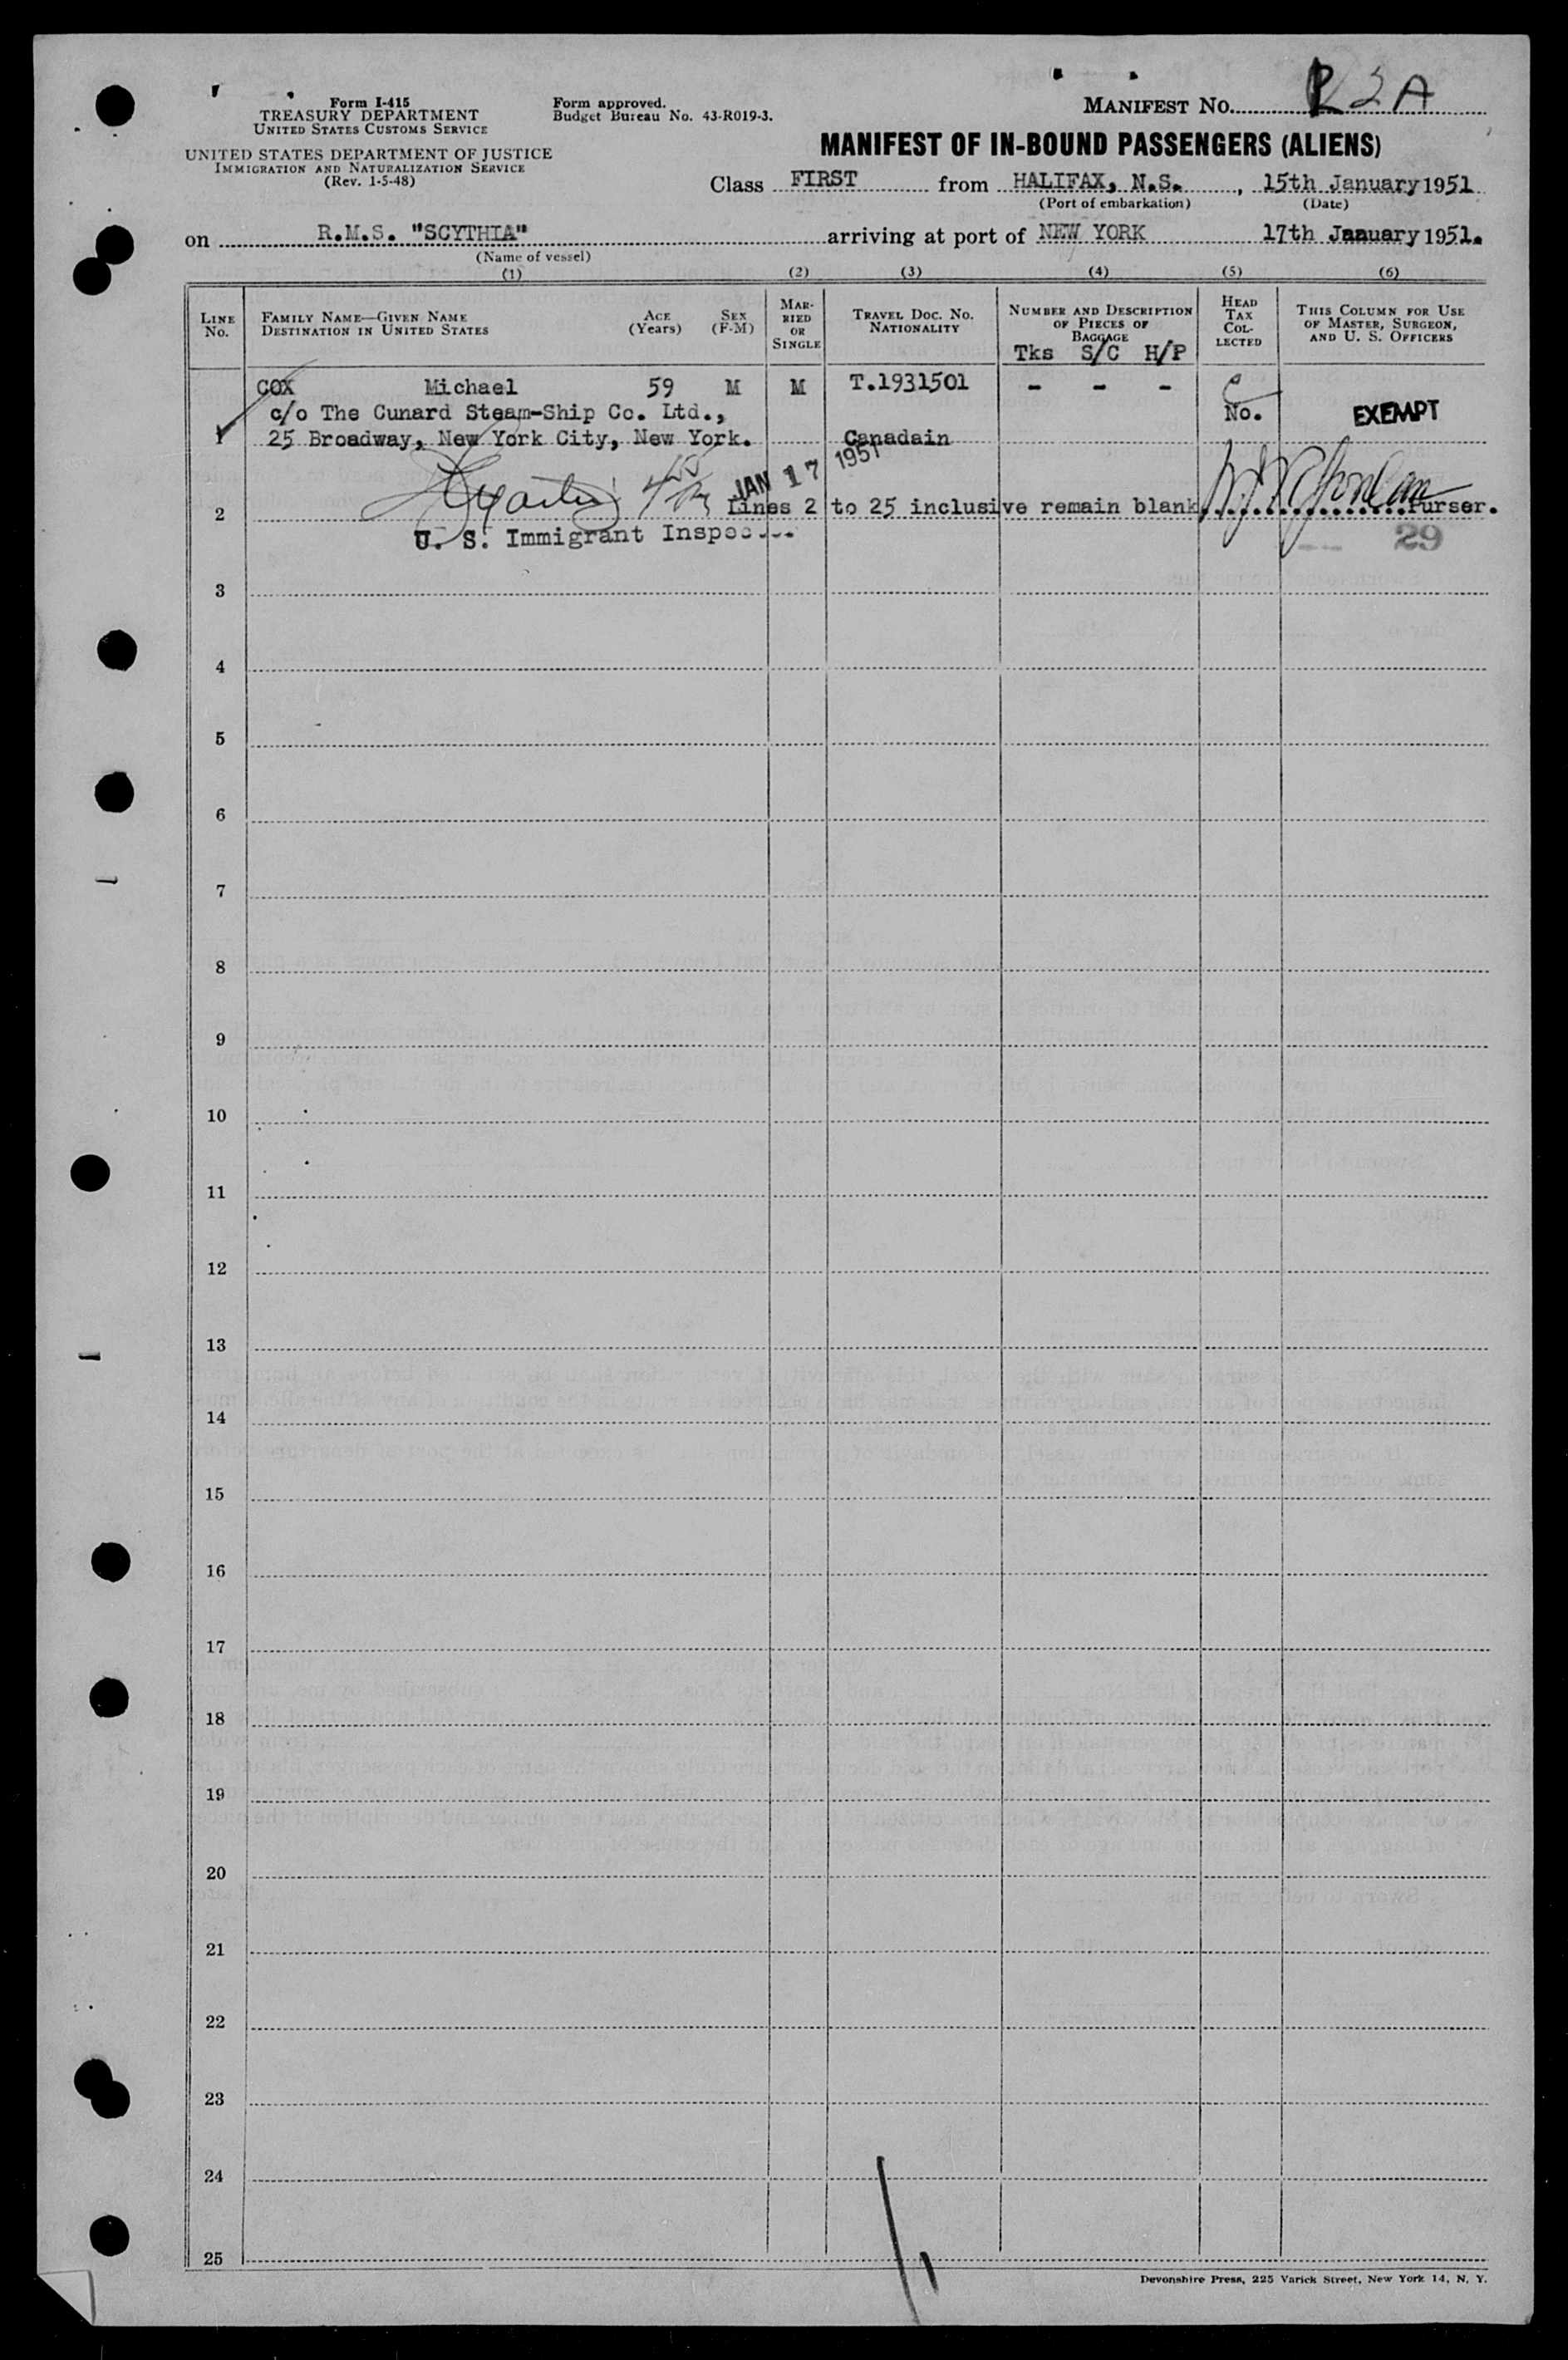 Form I-415
TREASURY DEPARTMENT
UNITED STATES CUSTOMS SERVICE
UNITED STATES DEPARTMENT OF JUSTICE
IMMIGRATION AND NATURALIZATION SERVICE
(Rev. 1-5-48)
Form approved.
Budget Bureau No. 43-R019-3.
MANIFEST NO. 2A
MANIFEST OF IN-BOUND PASSENGERS (ALIENS)
Class FIRST from HALIFAX, N.S., 15th January 1951
(Port of embarkation) (Date)
on R.M.S. "SCYTHIA" arriving at port of NEW YORK 17th January 1951.
(Name of vessel)
(1) (2) (3) (4) (5) (6)
LINE No. FAMILY NAME—GIVEN NAME DESTINATION IN UNITED STATES AGE (Years) SEX (F-M) MARRIED OR SINGLE TRAVEL DOC. NO. NATIONALITY NUMBER AND DESCRIPTION OF PIECES OF BAGGAGE HEAD TAX COLLECTED THIS COLUMN FOR USE OF MASTER, SURGEON, AND U. S. OFFICERS
Tks S/C H/P
COX Michael 59 M M T.1931501 - - -
c/o The Cunard Steam-Ship Co. Ltd., No. EXEMPT
1 25 Broadway, New York City, New York. Canadain
JAN 17 1951
2 Lines 2 to 25 inclusive remain blank Purser.
U. S. Immigrant 29
3
4
5
6
7
8
9
10
11
12
13
14
15
16
17
18
19
20
21
22
23
24
25
Devonshire Press, 225 Varick Street, New York 14, N. Y.